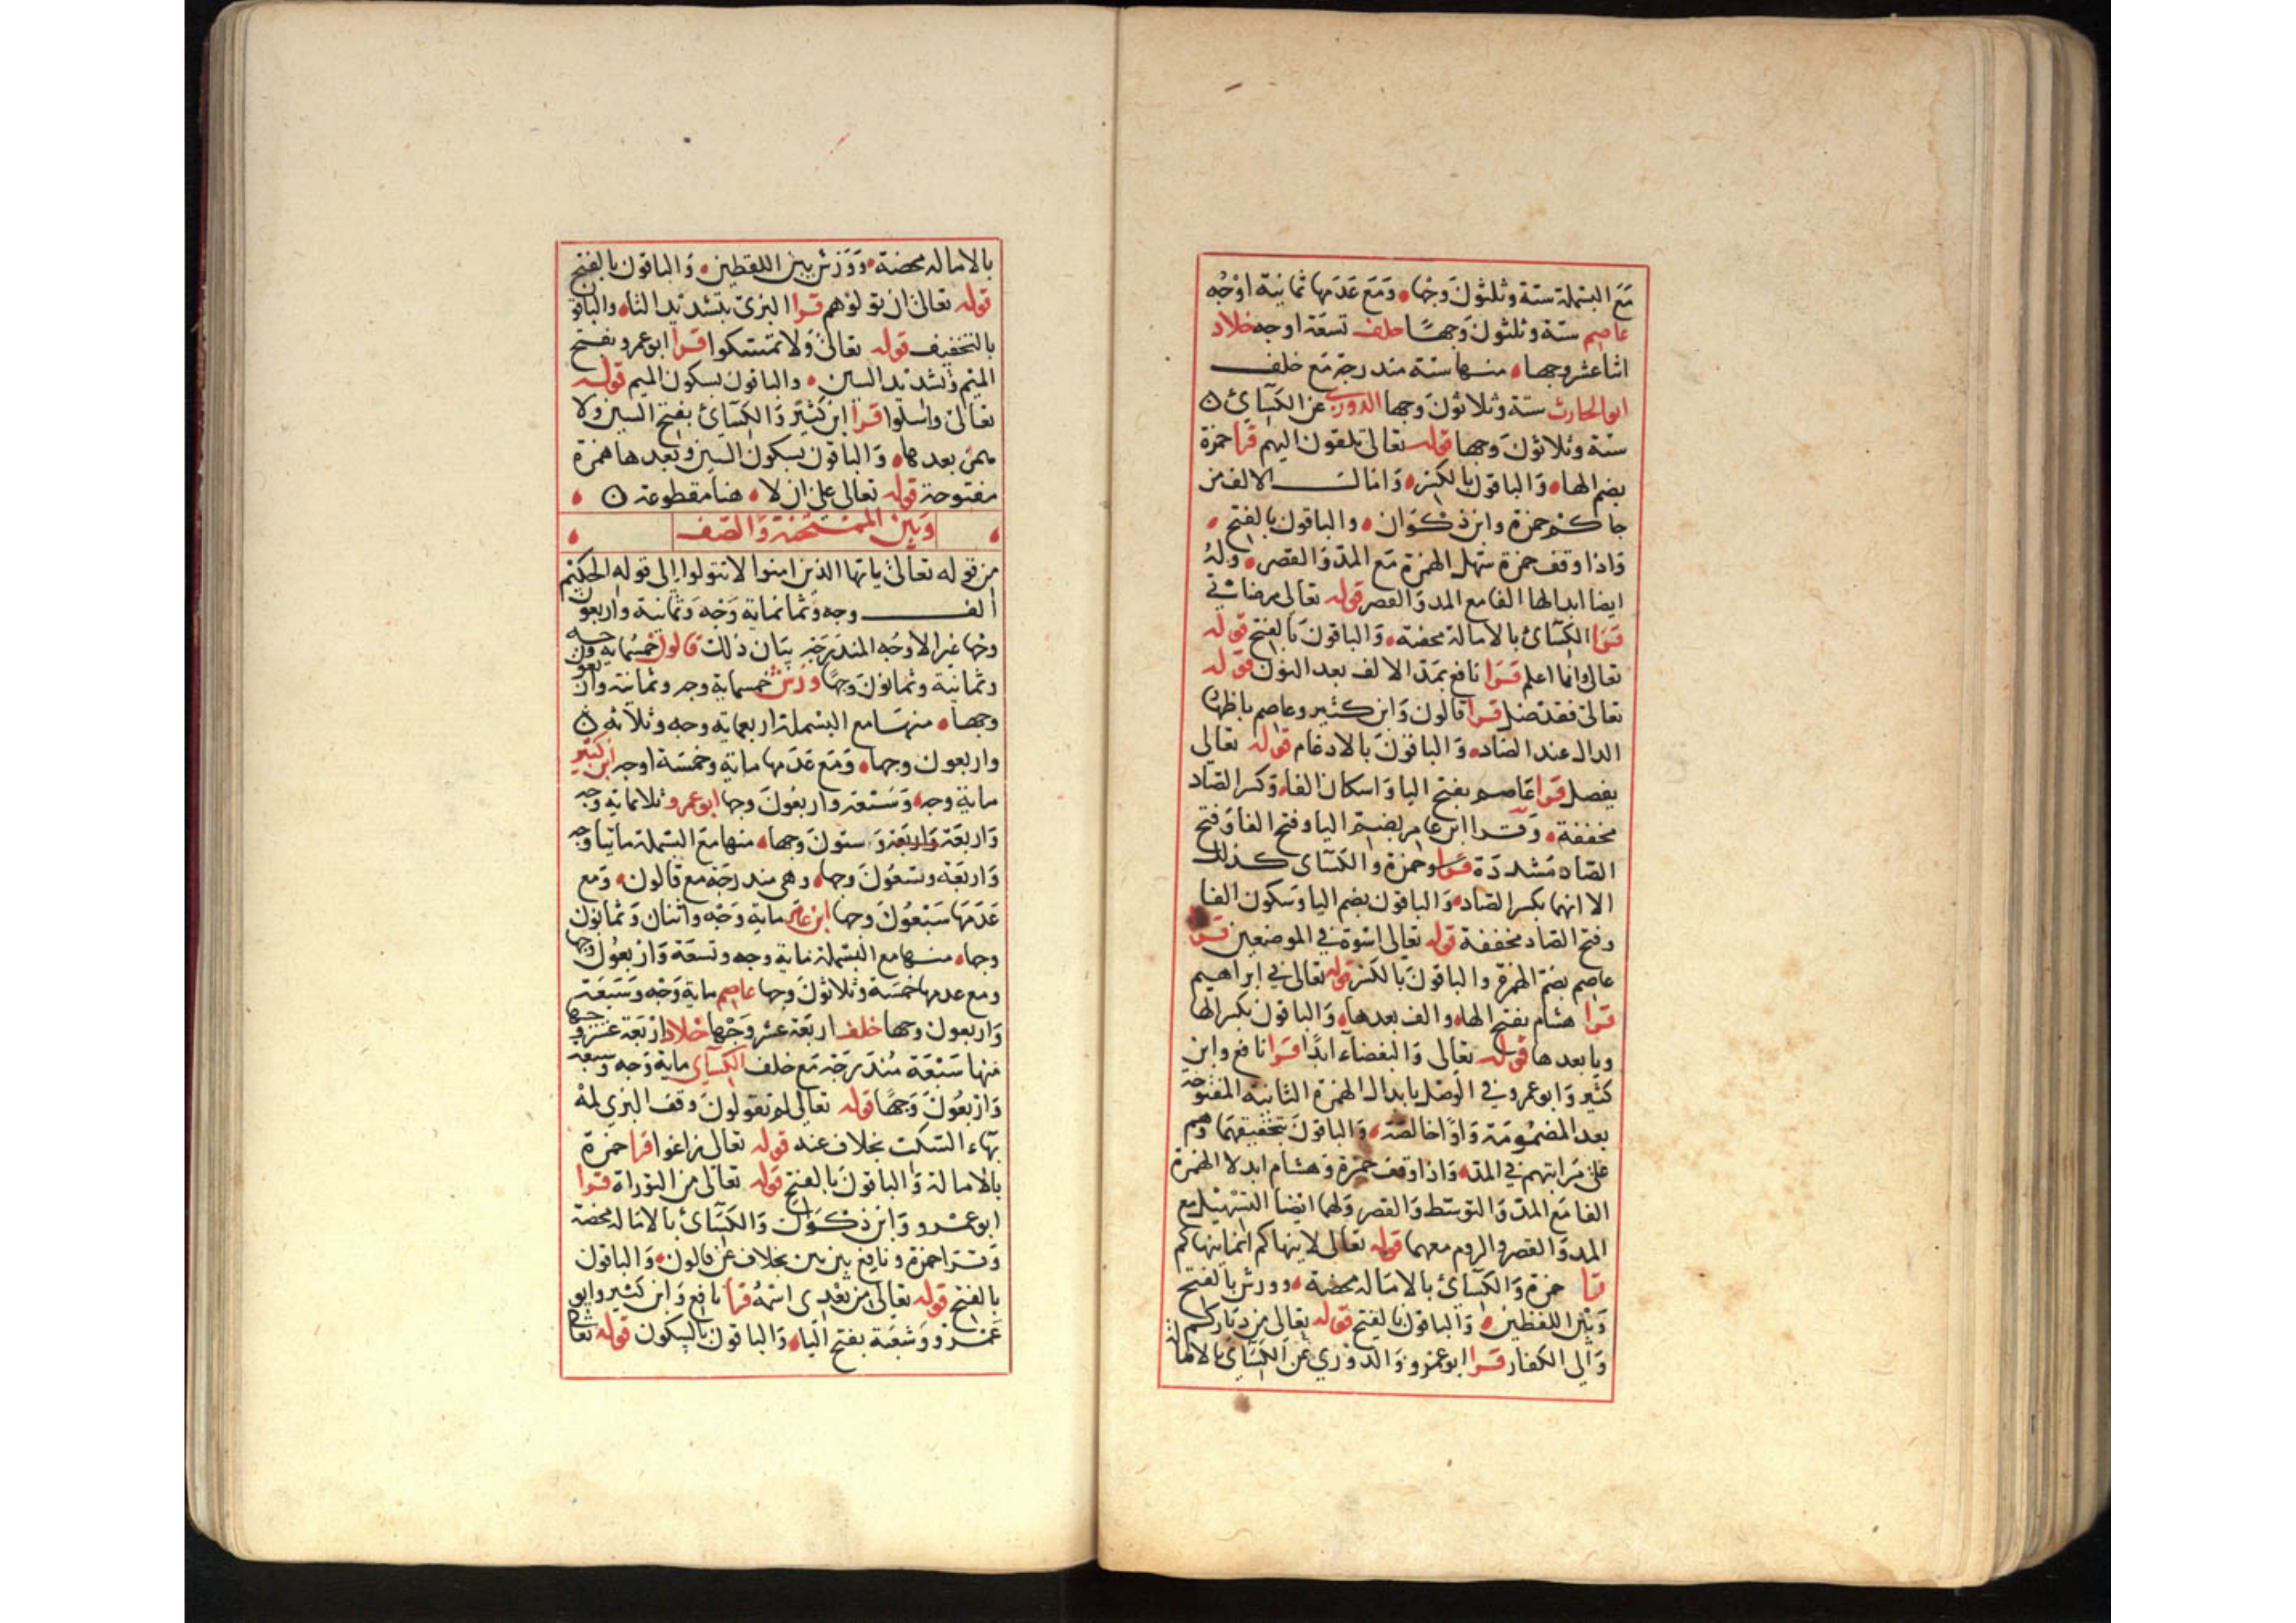 مَعَ البسملة ستة وثلثونَ وجها ومَع عَدَمها ثمانية اوْجُه
عاصم ستة وثلثونَ وجهًا خلف تسعَة اوجه خلاد
اثنا عشر وجها منها ستة مندرجة مَع خلف
ابو الحارث ستة وثلاثونَ وجها الدوري عن الكسآئ
ستة وثلاثونَ وجها قوله تعالى تلقون اليهم قرا حمزة
بضم الهاء وَالباقون بالكسر وَامالـــة الالف من
جاكم حمزة وابن ذكوان والباقون بالفتح
وَاذا وقف حمزة سهل الهمزة مَع المدّ وَالقصر وله
ايضا ابدالها الفا مع المد وَالقصر قوله تعالى مرضاتي
قرَا الكسآئ بالامالة محضة وَالباقونَ بالفتح قوله
تعالى وانا اعلم قرَا نافع بمَدّ الالف بعد النون قوله
تعالى فقد ضل قرا قالون وَابن كثير وعاصم باظهار
الدال عند الضاد وَالباقونَ بالادغام قوله تعالى
يفصل قرا عَاصم بفتح اليا وَاسكان الفا وَكسر الصاد
مخففة وَقرا ابن عامر بضم اليا وفتح الفا وَفتح
الصاد مشددَة قرا وحمزة وَالكسآى كذلك
الا انهما بكسر الصاد وَالباقون بضم اليا وَسكون الفا
وفتح الصاد مخففة قوله تعالى اسْوة في الموضعين قرا
عاصم بضم الهمزة والباقونَ بالكسر قوله تعالى في ابراهيم
قرا هشام بفتح الهاء والف بعدها وَالباقون بكسر الها
ويا بعدها قوله تعالى وَالبغضآء ابدًا قرا نافع وابن
كثير وَابو عمرو في الوَصل بابدال الهمزة الثانية المفتوحة
بعد المضمُومَة وَاوًا خالصة وَالباقونَ بتحقيقهما وَهم
على مَراتبهم في المد وَاذا وقف حمزة وَهشام ابدلا الهمزة
الفا مَع المدّ وَالتوسّط وَالقصر وَلهما ايضا التسْهيل مع
المد وَالقصر والروم معهما قوله تعالى لا ينهاكم انما ينهاكم
قرا حمزة وَالكسآئ بالامالة محضة وورش بالفتح
وَبين اللفظين وَالباقون بالفتح قوله تعالى من دياركم
وَالى الكفار قرا ابو عمرو وَالدوري عن الكسآئ بالامالة
بالامالة محضة وَوَرش بين اللفظين وَالباقون بالفتح
قوله تعالى ان تولوْهم قرا البزى بتشديد التاء والباقون
بالتخفيف قوله تعالى وَلا تمسكوا قرا ابو عمرو بفتح
الميم وَتشديد السين والباقون بسكون الميم قوله
تعالى واسلوا قرا ابن كثير وَالكسآئ بفتح السين ولا
همز بعدها وَالباقون بسكون السين وبَعدها همزة
مفتوحة قوله تعالى على ان لا هنا مقطوعة
وَبَين الممتحنة وَالصف
من قوله تعالى يا تها الذين امنوا لا تتولوا الى قوله الحكيم
الف وجه وَثمانماية وَجه وَثمانية واربعون
وجها غير الاوجُه المندرَجَة بيَان ذلك قالون خمسُماية وجه
وثمانية وثمانونَ وجهًا ورش خمسماية وجه وثمانية واربعون
وجها منها مع البسملة اربعماية وجه وثلاثة
واربعون وجها وَمَع عَدَمها ماية وخمسَة اوجه ابن كثير
ماية وجه وَسَبعَة واربعُونَ وجها ابو عمرو ثلاثماية وجه
وَاربعَة وَاربَعة وَستونَ وجها منها مَعَ البسملة مائيا وجه
وَاربَعَة وتسعُونَ وجها وهى مندرجَة مع قالون وَمع
عَدَمَها سَبْعُونَ وجها ابن عامر ماية وَجْه واثنان وَثمانون
وجها منها مع البسملة ماية وجه وتسعَة وَاربعُون وجها
ومع عدمها خمسَة وثلاثونَ وجها عاصم ماية وَجْه وَسَبعَة
وَاربعون وجها خلف اربَعَة عشر وَجْها خلاد اربَعَة عشر وجها
منها سَبْعَة مُندرجَة مَع خلف الكسآى ماية وَجه وسبعة
وَاربعُونَ وَجهًا قوله تعالى لم تقولونَ وَقف البزي لمهْ
بهَاء السّكت بخلاف عنه قوله تعالى زاغوا قرا حمزة
بالامالة وَالباقونَ بالفتح قوله تعالى من التوراة قرا
ابو عمرو وَابن ذكوَان وَالكسآئ بالامالة محضة
وَقرَا حمزة ونافع بين بين بخلاف عن قالون وَالباقون
بالفتح قوله تعالى من بَعْدى اسْمهُ قرا نافع وَابن كثير وابو
عَمرو وَشعبَة بفتح اليآء وَالباقون بالسكون قوله تعالى